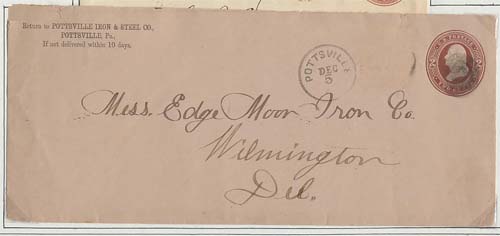 Return to POTTSVILLE IRON & STEEL CO.,
POTTSVILLE, Pa.,
If not delivered within 10 days.
POTTSVILLE
DEC
5
U.S. POSTAGE
Mess. Edge Moor Iron Co.
Wilmington
Del.